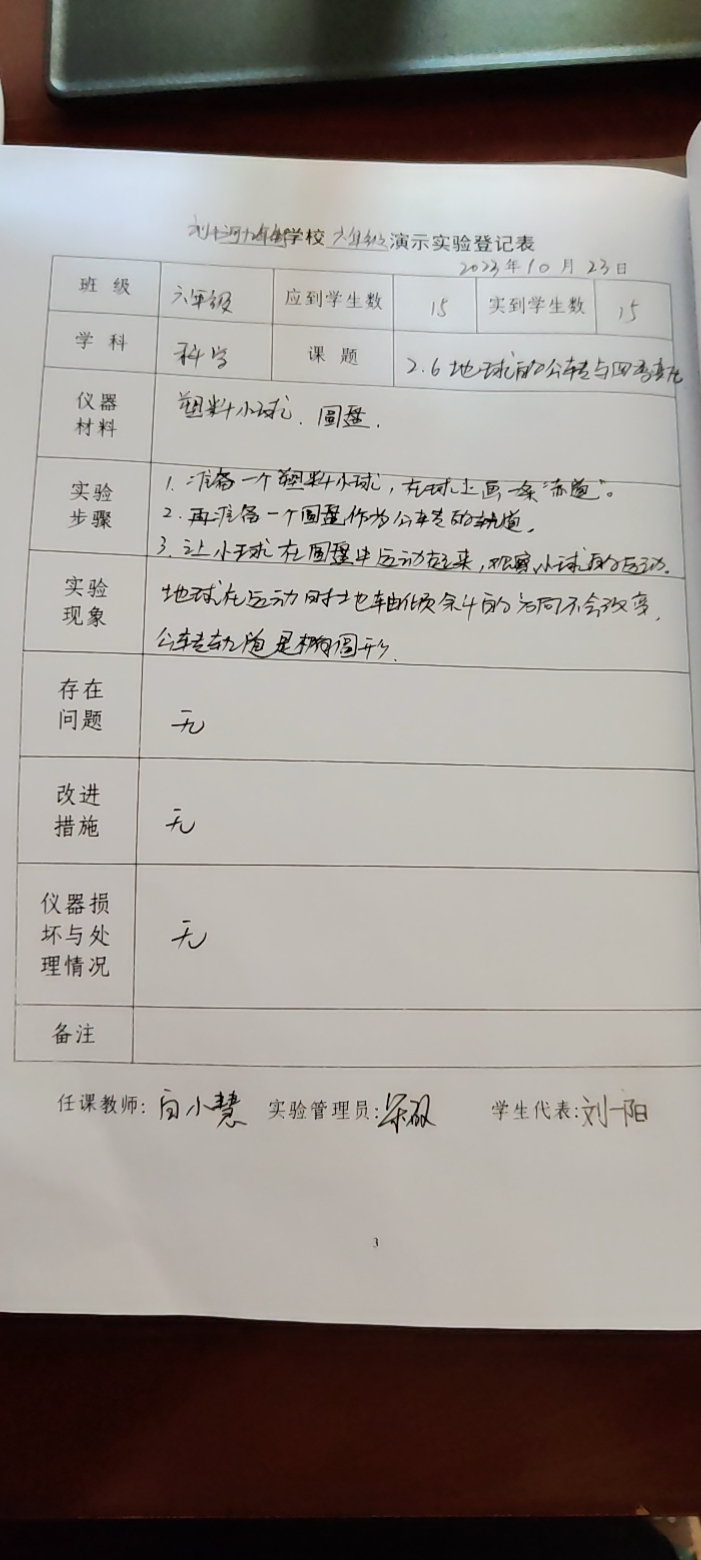 学校 六年级 演示实验登记表
2023年10月23日
班级 六年级 应到学生数 15 实到学生数 15
学科 科学 课题 2.6 地球的公转与四季变化
仪器
材料
塑料小球、圆盘.
实验
步骤
1. 准备一个塑料小球，在球上画一条“赤道”。
2. 再准备一个圆盘作为公转的轨道.
3. 让小球在圆盘中运动起来,观察小球的运动.
实验
现象
地球在运动时地轴倾斜的方向不会改变.
公转轨道是椭圆形.
存在
问题
无
改进
措施
无
仪器损
坏与处
理情况
无
备注
任课教师: 白小慧 实验管理员: 学生代表: 刘一阳
3